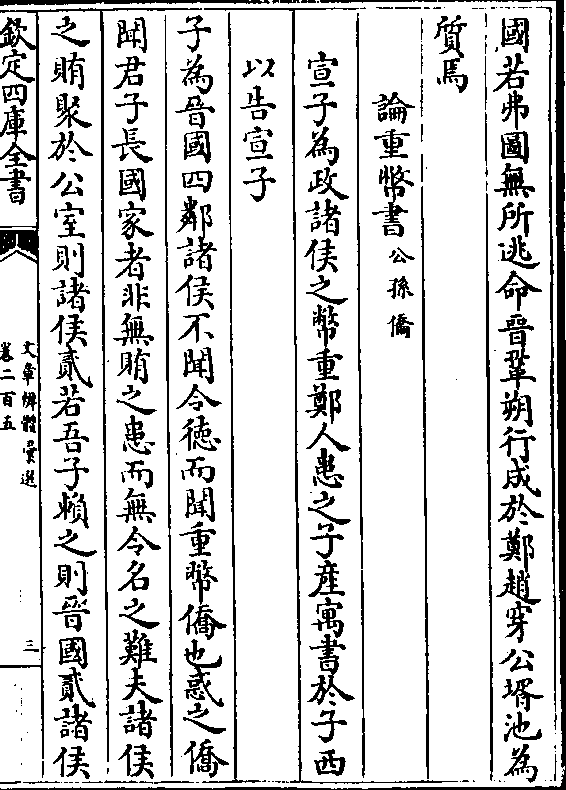 國若弗圖無所逃命晉鞏朔行成於鄭趙穿公壻池為
質焉
論重幣書公孫僑
宣子為政諸侯之幣重鄭人患之子產寓書於子西
以告宣子
子為晉國四鄰諸侯不聞令徳而聞重幣僑也惑之僑
聞君子長國家者非無賄之患而無令名之難夫諸侯
之賄聚於公室則諸侯貳若吾子頼之則晉國貳諸侯
欽定四庫全書
文章辨體彙選
卷二百五
三